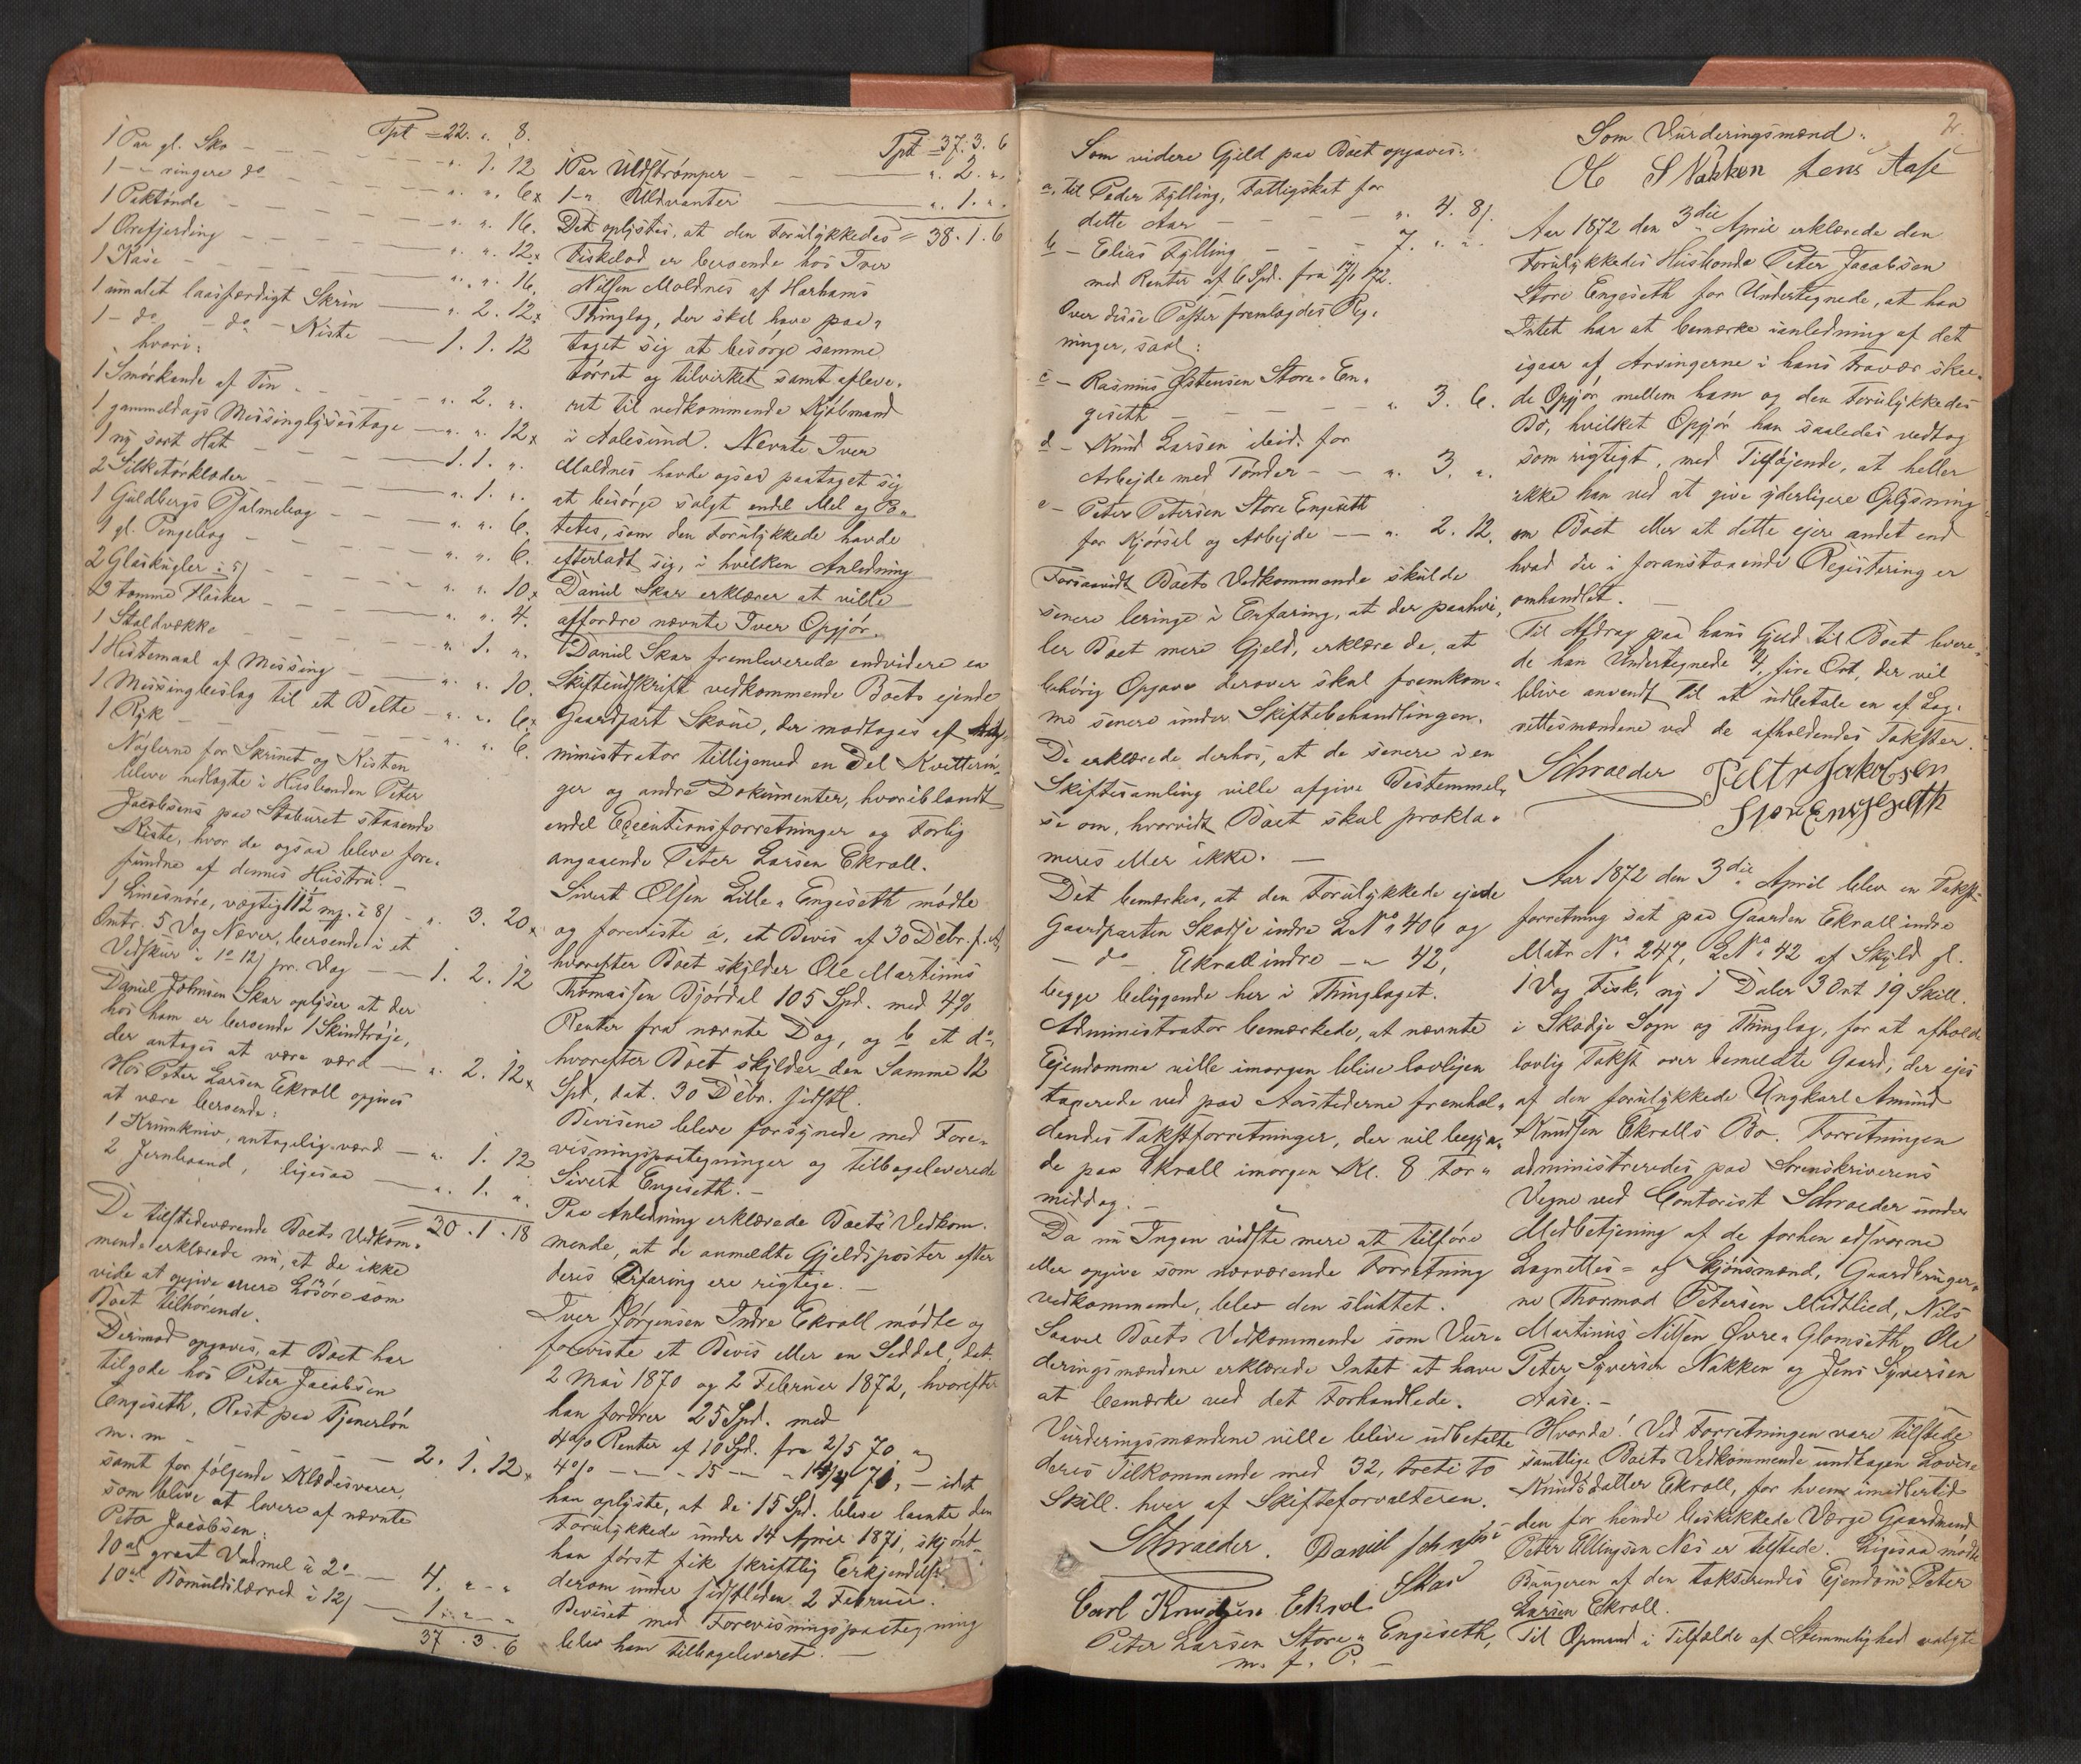 Tpt = 22. " 8.
1 Par gl. Sko - - - - ". 1. 12
1 -"- ringere do - - - ". ". 6x
1 Paktønde - - - - ". ". 16.
1 Ørefjerding - - - - ". ". 12x
1 Kase - - - - ". ". 16.
1 umalet laasfærdigt Skrin - ". 2. 12x
1 - do - do - Kiste - 1. 1. 12
hvori:
1 Smørkande af Tin - - ". 2. ".
1 gammeldags Messinglysestage - ". ". 12x
1 ny sort Hat - - - 1. 1. ".
2 Silketørklæder - - - ". 1. ".
1 Guldbergs Psalmebog - - ". ". 6.
1 gl. Pengebog - - - ". ". 6.
2 Glaskugler à 5/ - - - ". ". 10x
3 tomme Flasker - - - ". ". 4.
1 Staldvække - - - ". 1. ".
1 Hestemaal af Messing - ". ". 10.
1 Messingbeslag til et Belte - ". ". 6x
1 Ryk - - - ". ". 6.
Nøglerne for Skrinet og Kisten
bleve nedlagte i Husbonden Peter
Jacobsens paa Staburet staaende
Kiste, hvor de ogsaa bleve fore-
fundne af dennes Hustru. -
1 Linesnøre, vægtig 11½ mg. à 8/ - ". 3. 20x
Omtr. 5 Vog Næver, beroende i et
Vedskur à 1o 12/ pr. Vog - - 1. 2. 12
Daniel Johnsen Skar oplyser at der
hos ham er beroende 1 Skindtrøje,
der antages at være værd - ". 2. 12x
Hos Peter Larsen Ekroll opgives
at være beroende:
1 Krumkniv, antagelig værd - ". 1. 12
2 Jernbaand, ligesaa - ". 1. ".
= 30 . 1 . 18
De tilstedeværende Boets Vedkom-
mende erklærede nu, at de ikke
vide at opgive mere Løsøre som
Boet tilhørende.
Derimod opgaves, at Boet har
tilgode hos Peter Jacobsen
Engeseth, Rest paa Tjenerløn
m. m - - 2. 1. 12x
samt for følgende Klædesvarer,
som blive at levere af nævnte
Peter Jacobsen:
10 al graat Vadmel à 2o - 4. " - "
10 al Bomuldslærred à 12/ - 1. " - "
37 . 3 . 6
Tpt = 37. 3. 6
1 Par Uldstrømper - - ". 2. ".
1 -"- Uldvanter - ". 1. ".
Det oplystes, at den Forulykkedes = 38. 1. 6
Fiskelod er beroende hos Iver
Nilsen Moldnes af Harhams
Thinglag, der skal have paa-
taget sig at besørge samme
tørret og tilvirket samt afleve-
ret til vedkommende Kjøbmand
i Aalesund. Nævnte Iver
Moldnes havde ogsaa paataget sig
at besørge solgt endel Mel og Po-
tetes, som den Forulykkede havde
efterladt sig, i hvilken Anledning
Daniel Skar erklærer at ville
affordre nævnte Iver Opgjør.
Daniel Skar fremleverede endvidere en
Skifteudskrift vedkommende Boets ejende
Gaardpart Skoue, der modtoges af Ad-
ministrator tilligemed en Del Kvitterin-
ger og andre Dokumenter, hvoriblandt
endel Executionsforretninger og Forlig
angaaende Peter Larsen Ekroll.
Sivert Olsen Lille-Engeseth mødte
og foreviste a, et Bevis af 30 Debr. f. A.
hvorefter Boet skylder Ole Martinus
Thomassen Bjørdal 105 Spd. med 4%
Renter fra nævnte Dag, og b et do,
hvorefter Boet skylder den Samme 12
Spd, dat. 30 Debr. sidstl.
Beviserne bleve forsynede med Fore-
visningspaategninger og tilbageleverede
Sivert Engeseth. -
Paa Anledning erklærede Boets Vedkom-
mende, at de anmeldte Gjeldsposter efter
deres Erfaring ere rigtige. -
Iver Jørgensen Indre Ekroll mødte og
foreviste et Bevis eller en Seddel, dat.
2 Mai 1870 og 2 Februar 1872, hvorefter
han fordrer 25 Spd. med
4% Renter af 10 Spd. fra 2/5 70 og
4% - " - " 15 - " - " 14/4 71, - idet
han oplyste, at de 15 Spd. bleve laante den
Forulykkede under 14 April 1871, skjønt
han først fik skriftlig Erkjendelse
derom under sidstleden 2 Februar.
Beviset med Forevisningspaategning
blev ham tilbageleveret. -
Som videre Gjeld paa Boet opgaves:
a, til Peder Fylling, Fattigskat for
dette Aar - - - - ". 4. 8/.
b - Elias Fylling - - - 7. ". ".
med Renter af 6 Spd. fra 17/1 72.
Over disse Poster fremlagdes Reg-
ninger, saal:
c - Rasmus Østensen Store-En-
geseth - - - ". 3. 6.
d - Knud Larsen ibid. for
Arbejde med Tønder - - ". 3. ".
e - Peter Petersen Store Engeseth
for Kjørsel og Arbejde - - ". 2. 12.
Forsaavidt Boets Vedkommende skulde
senere bringe i Erfaring, at der paahvi-
ler Boet mere Gjeld, erklære de, at
behørig Opgave derover skal fremkom-
me senere under Skiftebehandlingen.
De erklærede derhos, at de senere i en
Skiftesamling ville afgive Bestemmel-
se om, hvorvidt Boet skal prokla-
meres eller ikke. -
Det bemærkes, at den Forulykkede ejede
Gaardparten Skodje indre L No 406 og
- do - Ekroll indre -"- 42,
begge beliggende her i Thinglaget.
Administrator bemærkede, at nævnte
Ejendomme ville imorgen blive lovligen
taxerede ved paa Aastederne fremhol-
dendes Takstforretninger, der vil begyn-
de paa Ekroll imorgen Kl. 8 For-
middag. -
Da nu Ingen vidste mere at tilføre
eller opgive som nærværende Forretning
vedkommende, blev den sluttet.
Saavel Boets Vedkommende som Vur-
deringsmændene erklærede Intet at have
at bemærke ved det Forhandlede.
Vurderingsmændene ville blive udbetalte
deres Tilkommende med 32, treti to
Skill. hver af Skifteforvalteren.
Schroeder. Daniel Johnsen
Skar
Carl Knudsen Ekrol
Peter Larsen Store-Engeseth,
m. f. P. -
2.
Som Vurderingsmænd:
Ole S Nakken Jens Aase
Aar 1872 den 3die April erklærede den
Forulykkedes Husbonde Peter Jacobsen
Store Engeseth for Undertegnede, at han
Intet har at bemærke ianledning af det
igaar af Arvingerne i hans Fravær skee-
de Opgjør mellem ham og den Forulykkedes
Bo, hvilket Opgjør han saaledes vedtog
som rigtigt, med Tilføjende, at heller
ikke han ved at give yderligere Oplysning
om Boet eller at dette ejer andet end
hvad der i foranstaaende Registering er
omhandlet. -
Til Afdrag paa hans Gjeld til Boet levere-
de han Undertegnede 4, fire Ort, der vil
blive anvendt til at udbetale en af Lag-
rettesmændene ved de afholdendes Takster.
Schroeder Petter Jakobsen
Stor Engeseth
Aar 1872 den 3die April blev en Takst-
forretning sat paa Gaarden Ekroll indre
Matr No 247, L No 42 af Skyld gl.
1 Vog Fisk, ny 1 Daler 3 Ort 19 Skill.
i Skodje Sogn og Thinglag, for at afholde
lovlig Takst over bemeldte Gaard, der ejes
af den forulykkede Ungkarl Amund
Knudsen Ekrolls Bo. Forretningen
administreredes paa Sorenskriverens
Vegne ved Contorist Schroeder under
Medbetjening af de forhen edsvorne
Lagrettes- og Skjønsmænd, Gaardbruger-
ne Thormod Petersen Midtlied, Nils
Martinus Nilsen Øvre-Glomseth, Ole
Peter Syversen Nakken og Jens Syversen
Aase. -
Hvorda! Ved Forretningen vare tilstede
samtlige Boets Vedkommende undtagen Lovise
Knudsdatter Ekroll, for hvem imidlertid
den for hende beskikkede Værge Gaardmand
Peter Ellingsen Næs er tilstede. Ligesaa mødte
Brugeren af den takserendes Ejendom Peter
Larsen Ekroll.
Til Opmand i Tilfælde af Stemmelighed valgte